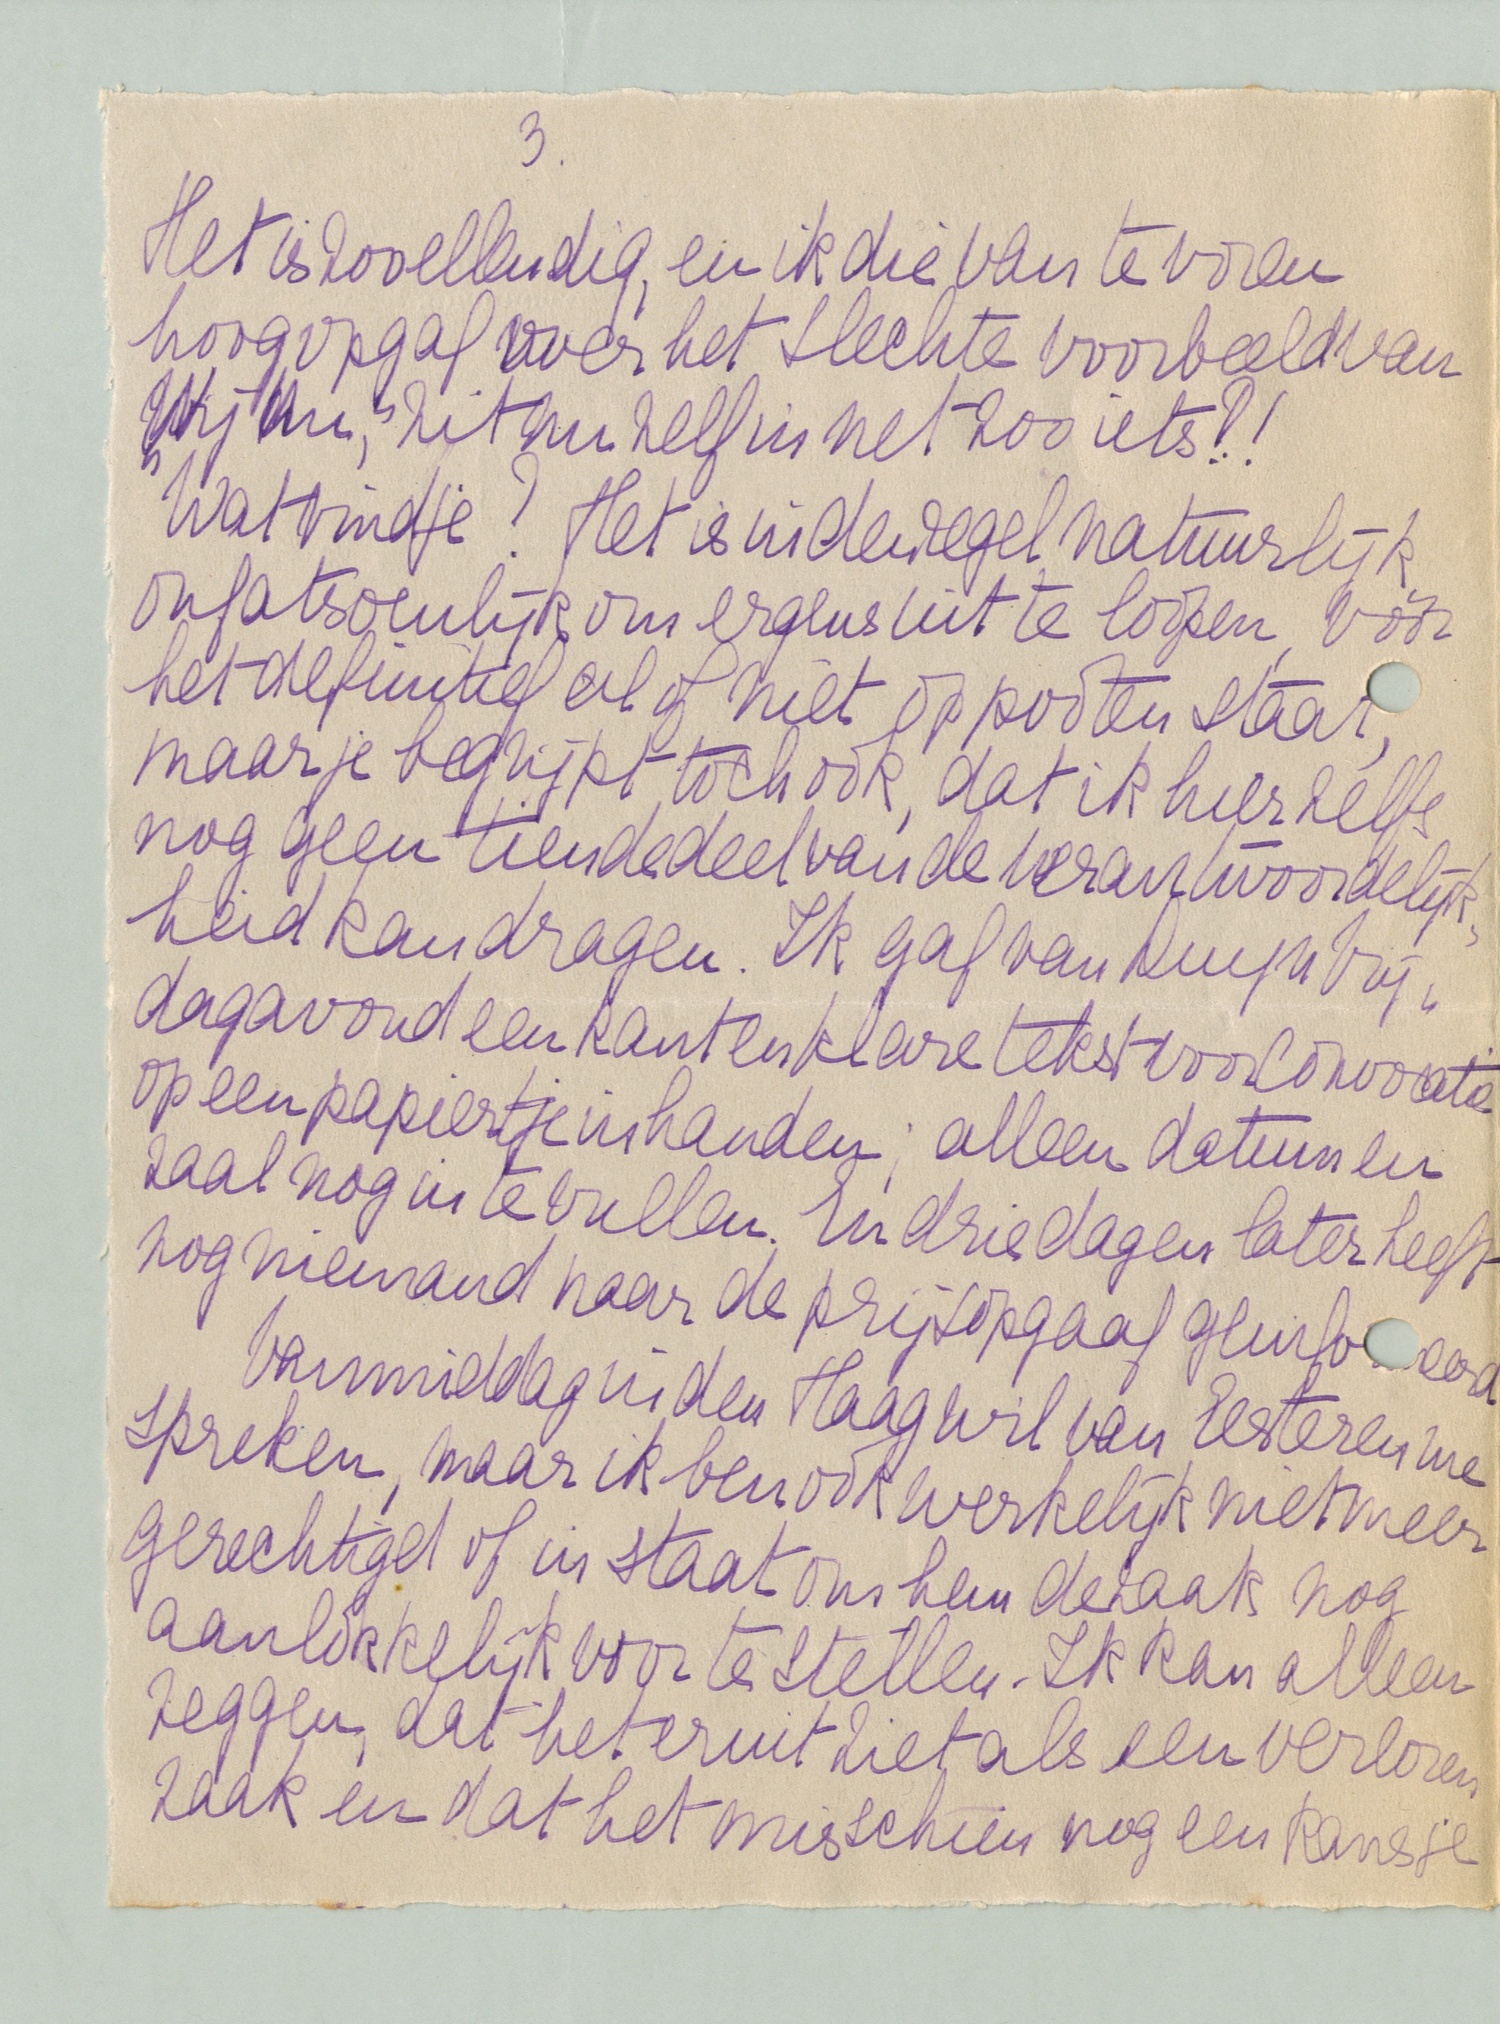 3.
Het is zoo ellendig, en ik die van te voren
hoog opgaf over het slechte voorbeeld van
"Wij Nu," zit nu zelf in net zoo iets?!
Wat vind je? Het is in den regel natuurlijk
onfatsoenlijk om ergens uit te loopen, vóór
het definitief al of niet op pooten staat,
maar je begrijpt toch ook, dat ik hier zelfs
nog geen tiende deel van de verantwoordelijk-
heid kan dragen. Ik gaf van Duyn Vrij-
dagavond een kant en klare tekst voor convocatie
op een papiertje in handen; alleen datum en
zaal nog in te vullen. En drie dagen later heeft
nog niemand naar de prijsopgaaf geinformeerd
Vanmiddag in den Haag wil van Eesteren me
spreken, maar ik ben ook werkelijk niet meer
gerechtigd of in staat om hem de zaak nog
aanlokkelijk voor te stellen. Ik kan alleen
zeggen, dat het eruit ziet als een verloren
zaak en dat het misschien nog een kansje